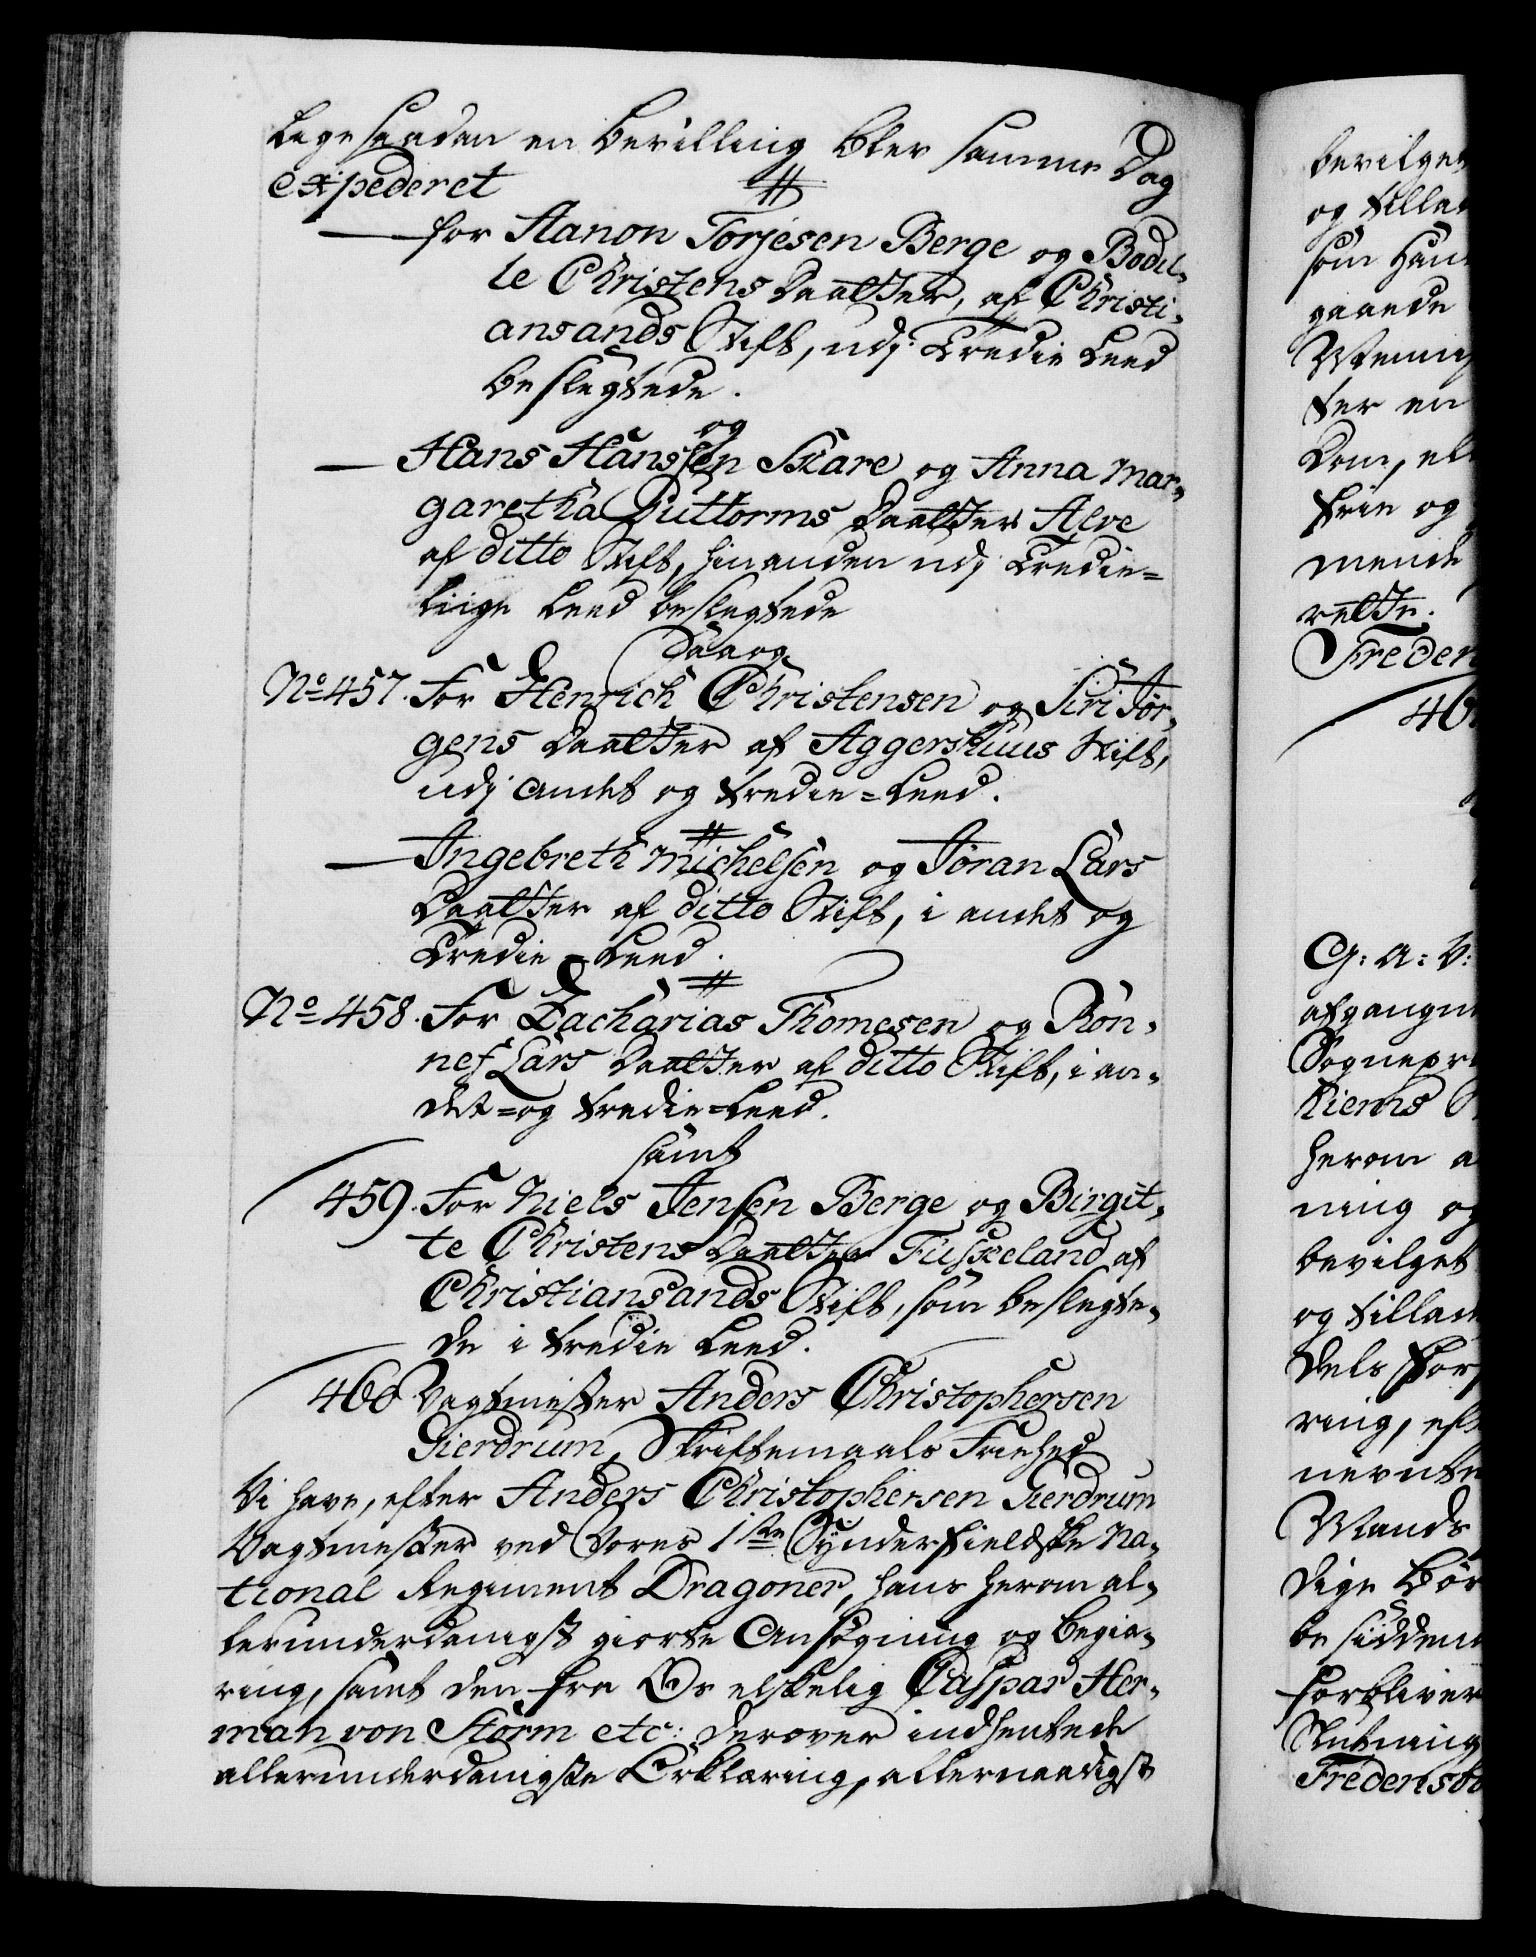 Lige saadan en Bevilling blev samme Dag
expederet
#
— for Aanon Torjesen Berge og Bodil-
le Christens Daatter, af Christi-
ansands Stift, udj Tredie Leed
beslegtede.
og
— Hans Hanssen Skare og Anna Mar-
garetha Guttorms Daatter Alve
af ditto Stift, hinanden udj Tredie=
liige Leed beslegtede
Saa og
No 457. For Henrich Christensen og Siri Jør-
gens Daatter af Aggershuus Stift,
udj andet og tredie=Leed.
#
— Ingebreth Michelsen og Jøran Lars
Daatter af ditto Stift, i andet og
Tredie=Leed.
#
No 458. For Zacharias Thomesen og Røn-
nef Lars Daatter af ditto Stift, i an-
det=og tredie=Leed.
samt
459. For Niels Jensen Berge og Birgit-
te Christens Daatter Fuskeland af
Christiansands Stift, som beslegte-
de i tredie Leed.
460 Vagtmester Anders Christophersen
Gierdrum, Skriftemaals Friehed
Vi have, efter Anders Christophersen Gierdrum
Vagtmester ved Vores 1ste Synderfieldske Na-
tional Regiment Dragoner, hans herom al-
lerunderdanigst giorte Ansøgning og begie-
ring, samt den fra Os elskelig Caspar Her-
man von Storm etc: derover indhentede
allerunderdanigste Erklæring, allernaadigst
bevilget
og tillad
som han
gaaende
ter en
Dom,
frie og
mende
rette.
Freden
46
G: A: V:
afgangne
Sognepr
hiems
herom a
ning og
bevilget
og tillad
dels For
ring, eft
nevnte
Mands
dige Bør
besidden
forbliver
Fredensb